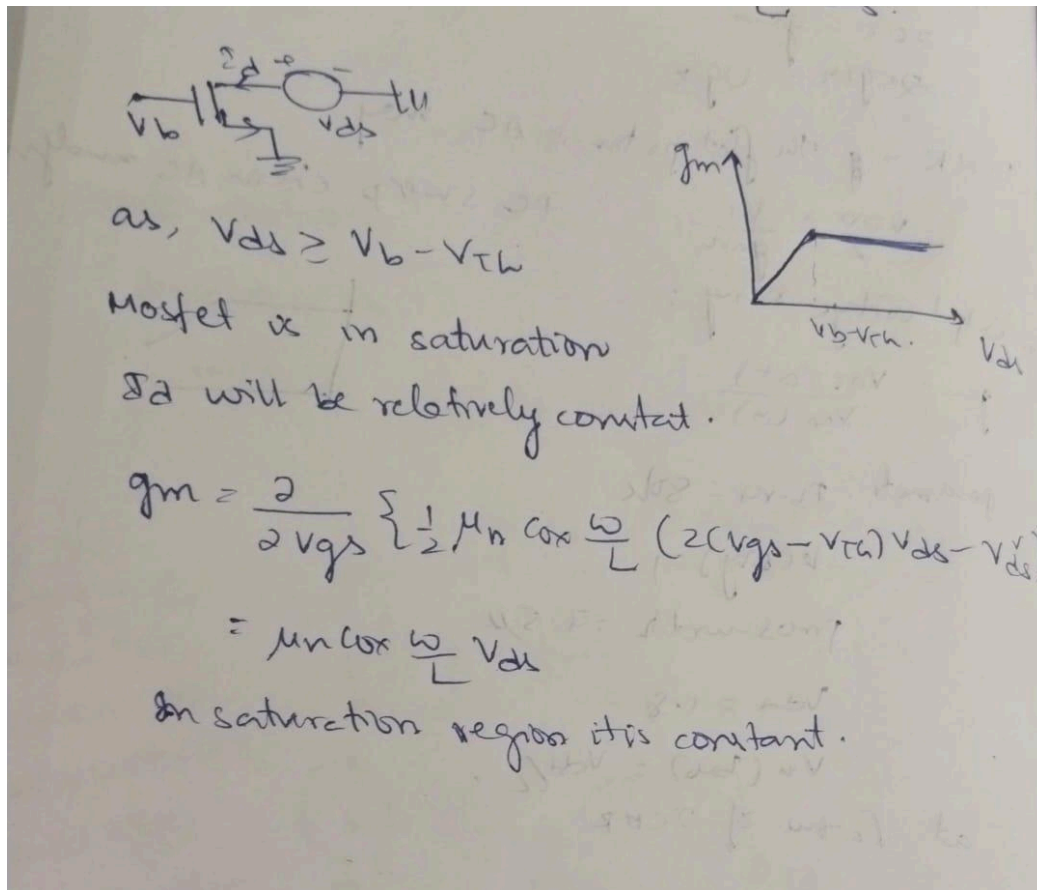 Id + -
Vb
Vds
gm
as, Vds ≥ Vb - VTh
Vb-VTh.
Vds
Mosfet is in saturation
Id will be relatively constat.
gm = ∂/∂Vgs { 1/2 μn Cox W/L (2(Vgs-VTh) Vds - Vds²
= μn Cox W/L Vds
In saturation region it is constant.